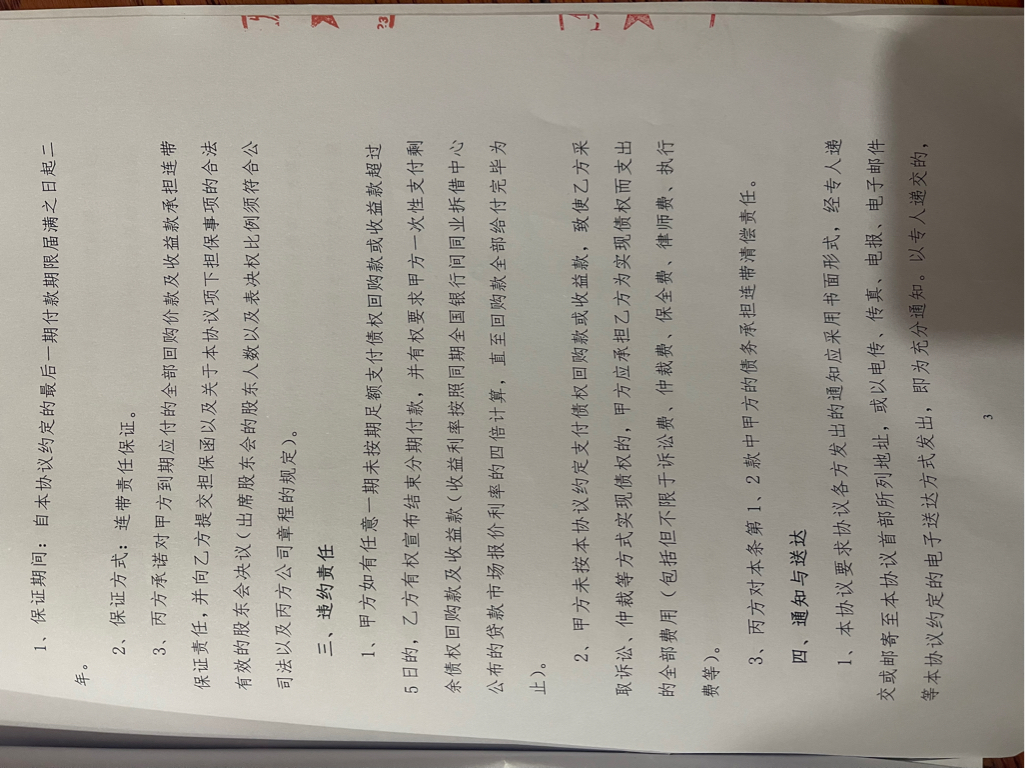 1、保证期间：自本协议约定的最后一期付款期限届满之日起二
年。
2、保证方式：连带责任保证。
3、丙方承诺对甲方到期应付的全部回购价款及收益款承担连带
保证责任，并向乙方提交担保函以及关于本协议项下担保事项的合法
有效的股东会决议（出席股东会的股东人数以及表决权比例须符合公
司法以及丙方公司章程的规定）。
三、违约责任
1、甲方如有任意一期未按期足额支付债权回购款或收益款超过
5日的，乙方有权宣布结束分期付款，并有权要求甲方一次性支付剩
余债权回购款及收益款（收益利率按照同期全国银行间同业拆借中心
公布的贷款市场报价利率的四倍计算，直至回购款全部给付完毕为
止）。
2、甲方未按本协议约定支付债权回购款或收益款，致使乙方采
取诉讼、仲裁等方式实现债权的，甲方应承担乙方为实现债权而支出
的全部费用（包括但不限于诉讼费、仲裁费、保全费、律师费、执行
费等）。
3、丙方对本条第1、2款中甲方的债务承担连带清偿责任。
四、通知与送达
1、本协议要求协议各方发出的通知应采用书面形式，经专人递
交或邮寄至本协议首部所列地址，或以电传、传真、电报、电子邮件
等本协议约定的电子送达方式发出，即为充分通知。以专人递交的，
3